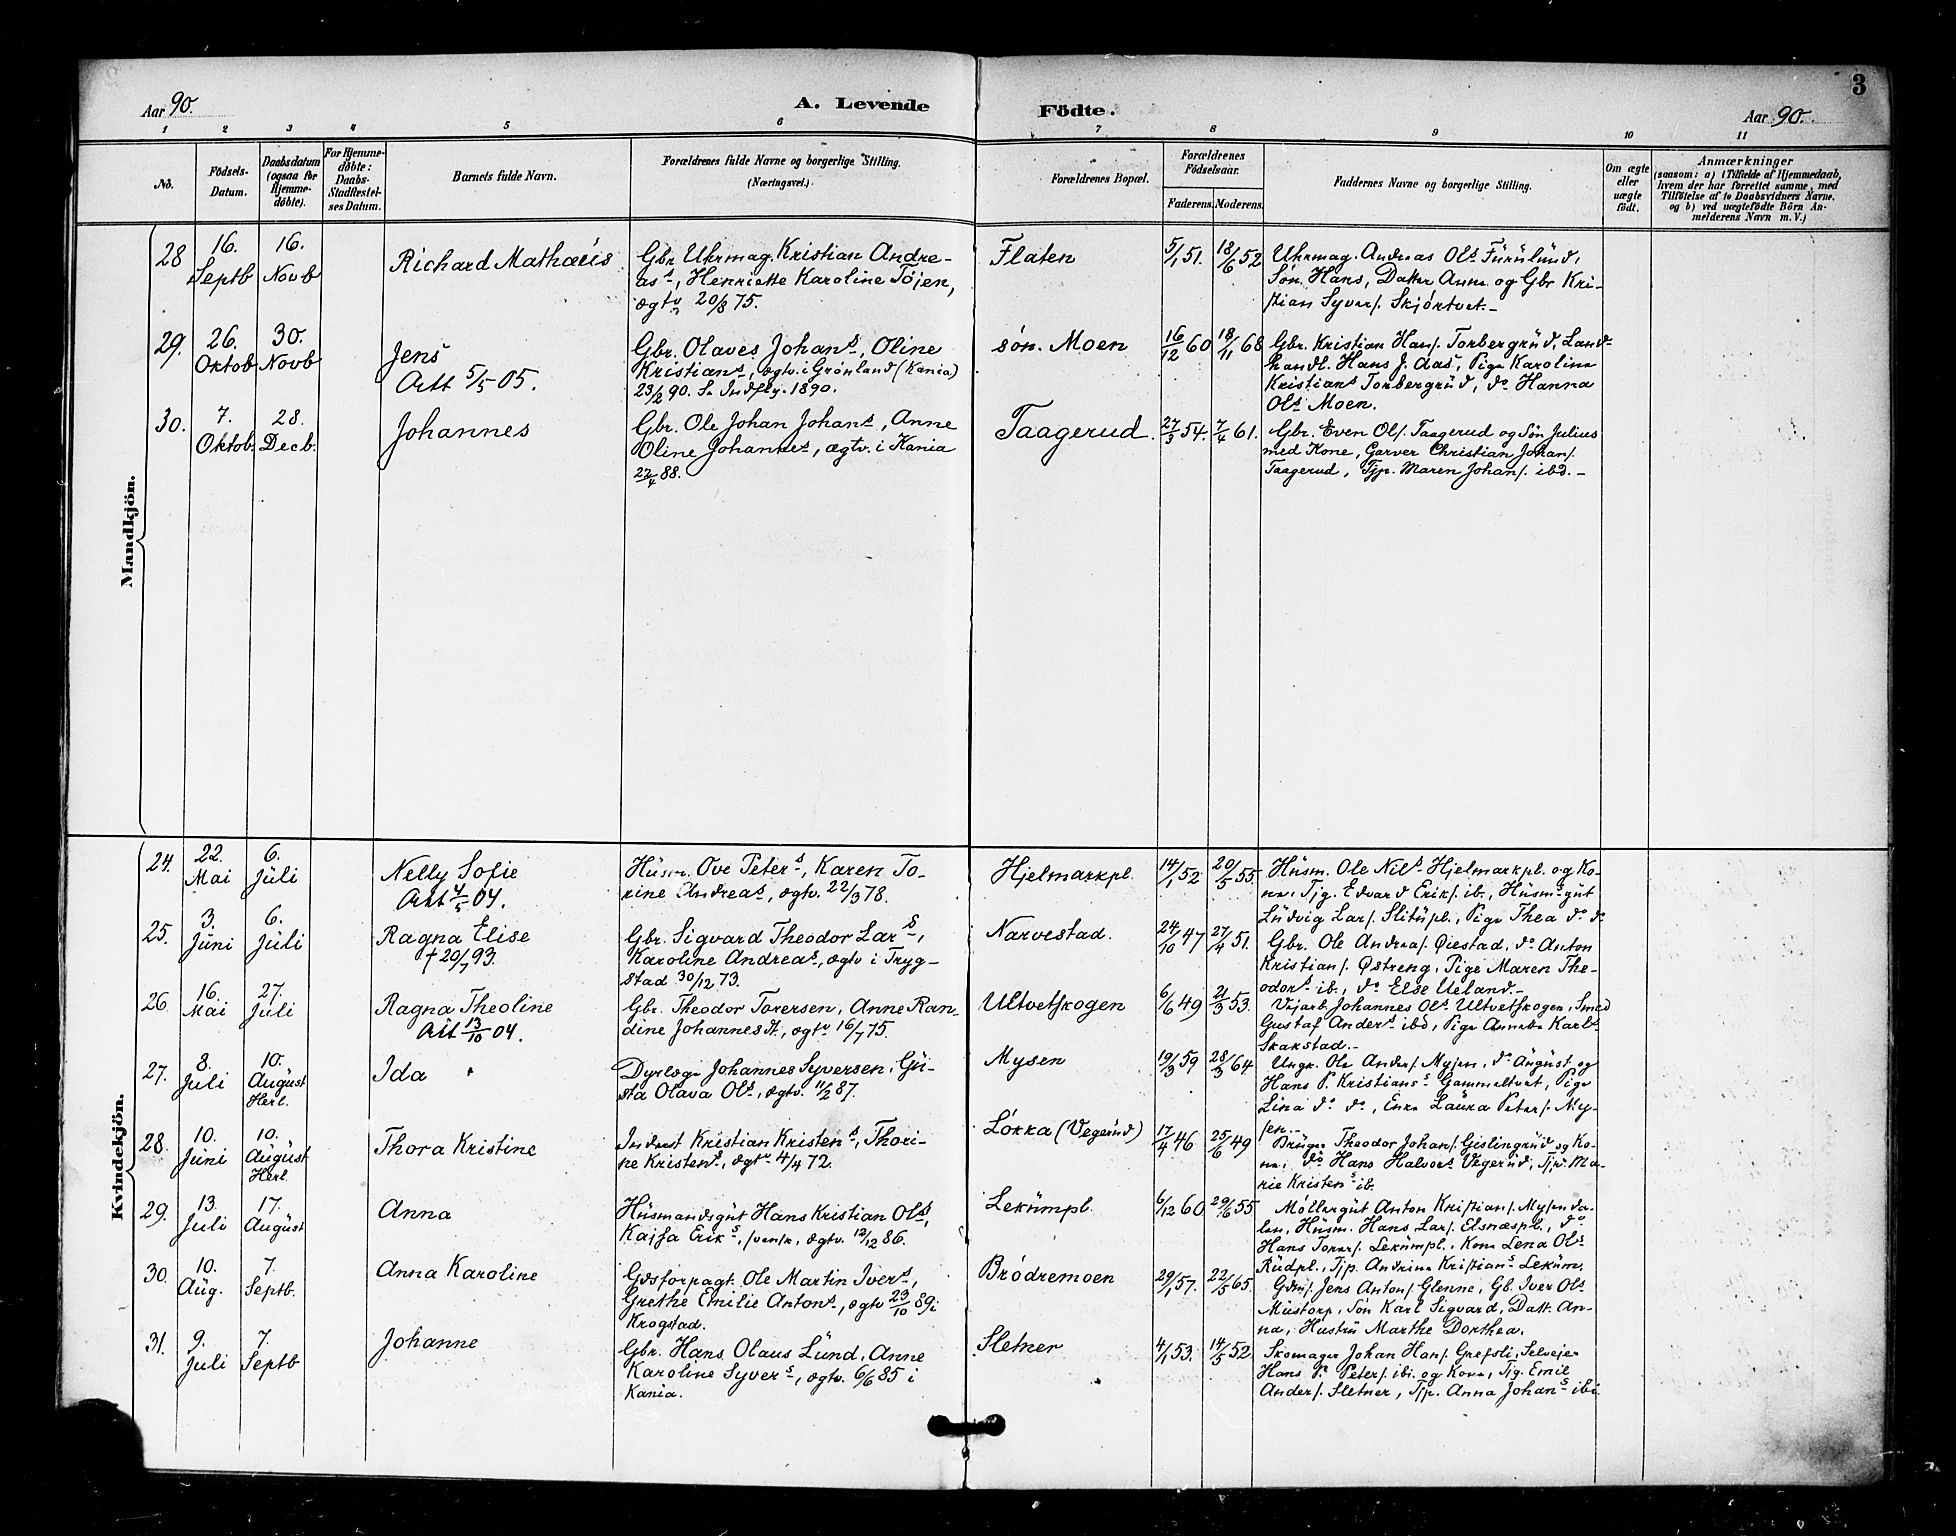 3
Aar 90.
A. Levende
Födte.
Aar 90.
1 2 3 4 5 6 7 8 9 10 11
No.
Födsels-
Datum.
Daabsdatum
(ogsaa for
Hjemme-
döbte).
For Hjemme-
döbte:
Daabs-
Stadfestel-
ses Datum.
Barnets fulde Navn.
Forældrenes fulde Navne og borgerlige Stilling.
(Næringsvei.)
Forældrenes Bopæl.
Forældrenes
Födselsaar.
Faderens.
Moderens.
Faddernes Navne og borgerlige Stilling.
Om ægte
eller
uægte
födt.
Anmærkninger
(saasom: a) i Tilfælde af Hjemmedaab,
hvem der har forrettet samme, med
Tilföielse af to Daabsvidners Navne.
og b) ved uægtefödte Börn An-
melderens Navn m. V.)
Mandkjön.
28
16.
Septb
16.
Novb
Richard Mathæus
Gbr Uhrmag. Kristian Andre-
as s, Henriette Karoline Töjen,
ægtv 20/8 75.
Flaten
5/1 51.
18/6 52
Uhrmag. Andreas Ols Furulund,
Søn Hans, Datter Anne og Gbr Kri-
stian Syvers. Skjörtvet.-
29.
26.
Oktob
30.
Novb
Jens
Att 5/5 05.
Gbr. Olaves Johans, Oline
Kristians, ægtv. i Grönland (Kania)
23/2 90. S. Indfly. 1890.
søn. Moen
16/12 60
18/11 68
Gbr. Kristian Hans. Torbergrud, Land-
handl. Hans J. Aas, Pige Karoline
Kristians Torbergrud, do Hanna
Ols Moen.
30.
7.
Oktob.
28.
Decb.
Johannes
Gbr. Ole Johan Johans, Anne
Oline Johannes, ægtv. i Kania
22/4 88.
Taagerud.
27/3 54.
7/4 61.
Gbr. Even Ols. Taagerud og Søn Julius
med Kone, Garver Christian Johans.
Taagerud, Tjp. Maren Johans. ibd.-
Kvindekjön.
24.
22.
Mai
6.
Juli
Nelly Sofie
Att 4/5 04.
Husm. Ove Peters, Karen To-
rine Andreas, ægtv. 22/3 78.
Hjelmarkpl.
14/1 52
20/5 55
Husm. Ole Nils Hjelmarkpl. og Ko-
ne, Tjg. Edvard Eriks. ib., Husmsgut
Ludvig Lars. Slitupl., Pige Thea do do
25.
3.
Juni
6.
Juli
Ragna Elise
† 20/7 93.
Gbr. Sigvard Theodor Lars,
Karoline Andreas, ægtv i Tryg-
stad 30/12 73.
Narvestad.
24/10 47
27/4 51.
Gbr. Ole Andreas. Øiestad, do Anton
Kristians. Østreng, Pige Maren The-
odors ib., do Else Ueland.-
26.
16.
Mai
27.
Juli
Ragna Theoline
Att 13/10 04.
Gbr. Theodor Torersen, Anne Ran-
dine Johannesdt., ægtv 16/7 75.
Ultvetskogen
6/6 49
21/3 53.
Vejarb. Johannes Ols Ultvetskogen, Smed
Gustaf Anders ibd, Pige Annette Karls
Skakstad.-
27.
8.
Juli
10.
August
Herl.
Ida
Dyrlæge Johannes Syversen, Gu-
sta Olava Ols, ægtv. 11/2 87.
Mysen
19/3 59
28/3 64
Ungk. Ole Anders. Mysen, do August og
Hans P. Kristians Gammeltvet, Pige
Lina do do, Enke Laura Peters. My-
sen.-
28.
10.
Juni
10.
August
Herl.
Thora Kristine
Inderst Kristian Kristens, Thori-
ne Kristens, ægtv 4/4 72.
Lökka (Vegerud)
17/4 46
25/6 49
Bruger Theodor Johans. Gislingrud og Ko-
ne, do Hans Halvors Vegerud, Tjp. Ma-
rie Kristens ib.
29.
13.
Juli
17.
August
Anna
Husmandsgut Hans Kristian Ols,
Kajsa Eriks, svensk, ægtv. 12/12 86.
Lekumpl.
6/12 60
29/6 55
Möllergut Anton Kristians. Mysenda-
len, Husm. Hans Lars. Elsnæspl., do
Hans Torers. Lekumpl., Kone Lena Ols
Rudpl., Tjp. Andrine Kristians Lekum.
30.
10.
Aug.
7.
Septb.
Anna Karoline
Gdsforpagt. Ole Martin Ivers,
Grethe Emilie Antons, ægtv 23/10 89 i
Krogstad.
Brödremoen
29/1 57.
22/5 65.
Gdm. Jens Antons. Glenne, Gb. Iver Ols
Mustorp, Søn Karl Sigvard, Datt. An-
na, Hustru Marthe Dorthea.
31.
9.
Juli
7.
Septb
Johanne
Gbr. Hans Olaus Lund, Anne
Karoline Syvers, ægtv. 6/6 85 i
Kania.
Sletner
4/1 53.
14/5 52
Skomager Johan Hans. Grefsli, Selvejer
Hans P. Peters. ibi. og Kone, Tjg. Emil
Anders. Sletner, Tjp. Anna Johans ibi